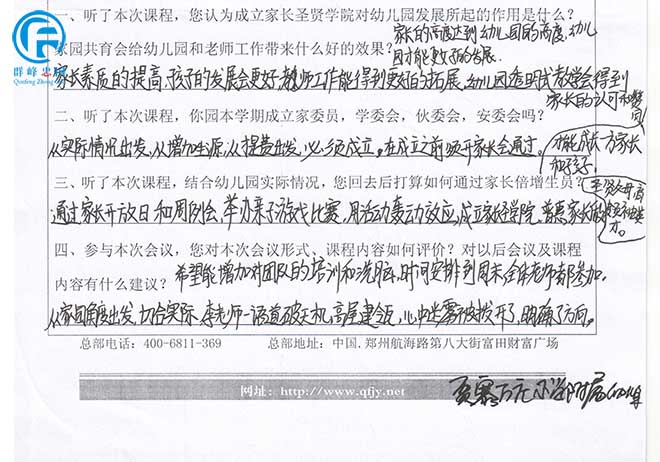 一、听了本次课程，您认为成立家长圣贤学院对幼儿园发展所起的作用是什么？
家园共育会给幼儿园和老师工作带来什么好的效果？
家长的高度达到幼儿园的高度，幼儿
园才能更好的发展.
家长素质的提高，孩子的发展会更好，教师工作能得到更好的拓展，幼儿园透明式教学会得到
家长的认可和赞
同
二、听了本次课程，你园本学期成立家委员，学委会，伙委会，安委会吗？
从实际情况出发，从增加生源，从提费出发，必须成立。在成立之前须开家长会通过。
才能成长一方家长
和孩子.
三、听了本次课程，结合幼儿园实际情况，您回去后打算如何通过家长倍增生员？
通过家长开放日和周例会，举办亲子游戏比赛，用活动轰动效应，成立家长学院，
四、参与本次会议，您对本次会议形式、课程内容如何评价？对以后会议及课程
内容有什么建议？
希望能增加对团队的培训和洗脑，时间安排到周末全体老师都参加。
从家园角度出发，切合实际，李老师一语道破天机，高屋建瓴，心中迷雾被拨开了，明确了方向。
总部电话：400-6811-369 总部地址：中国.郑州航海路第八大街富田财富广场
网址：http://www.qfjy.net
群峰忠诚
附属幼儿园